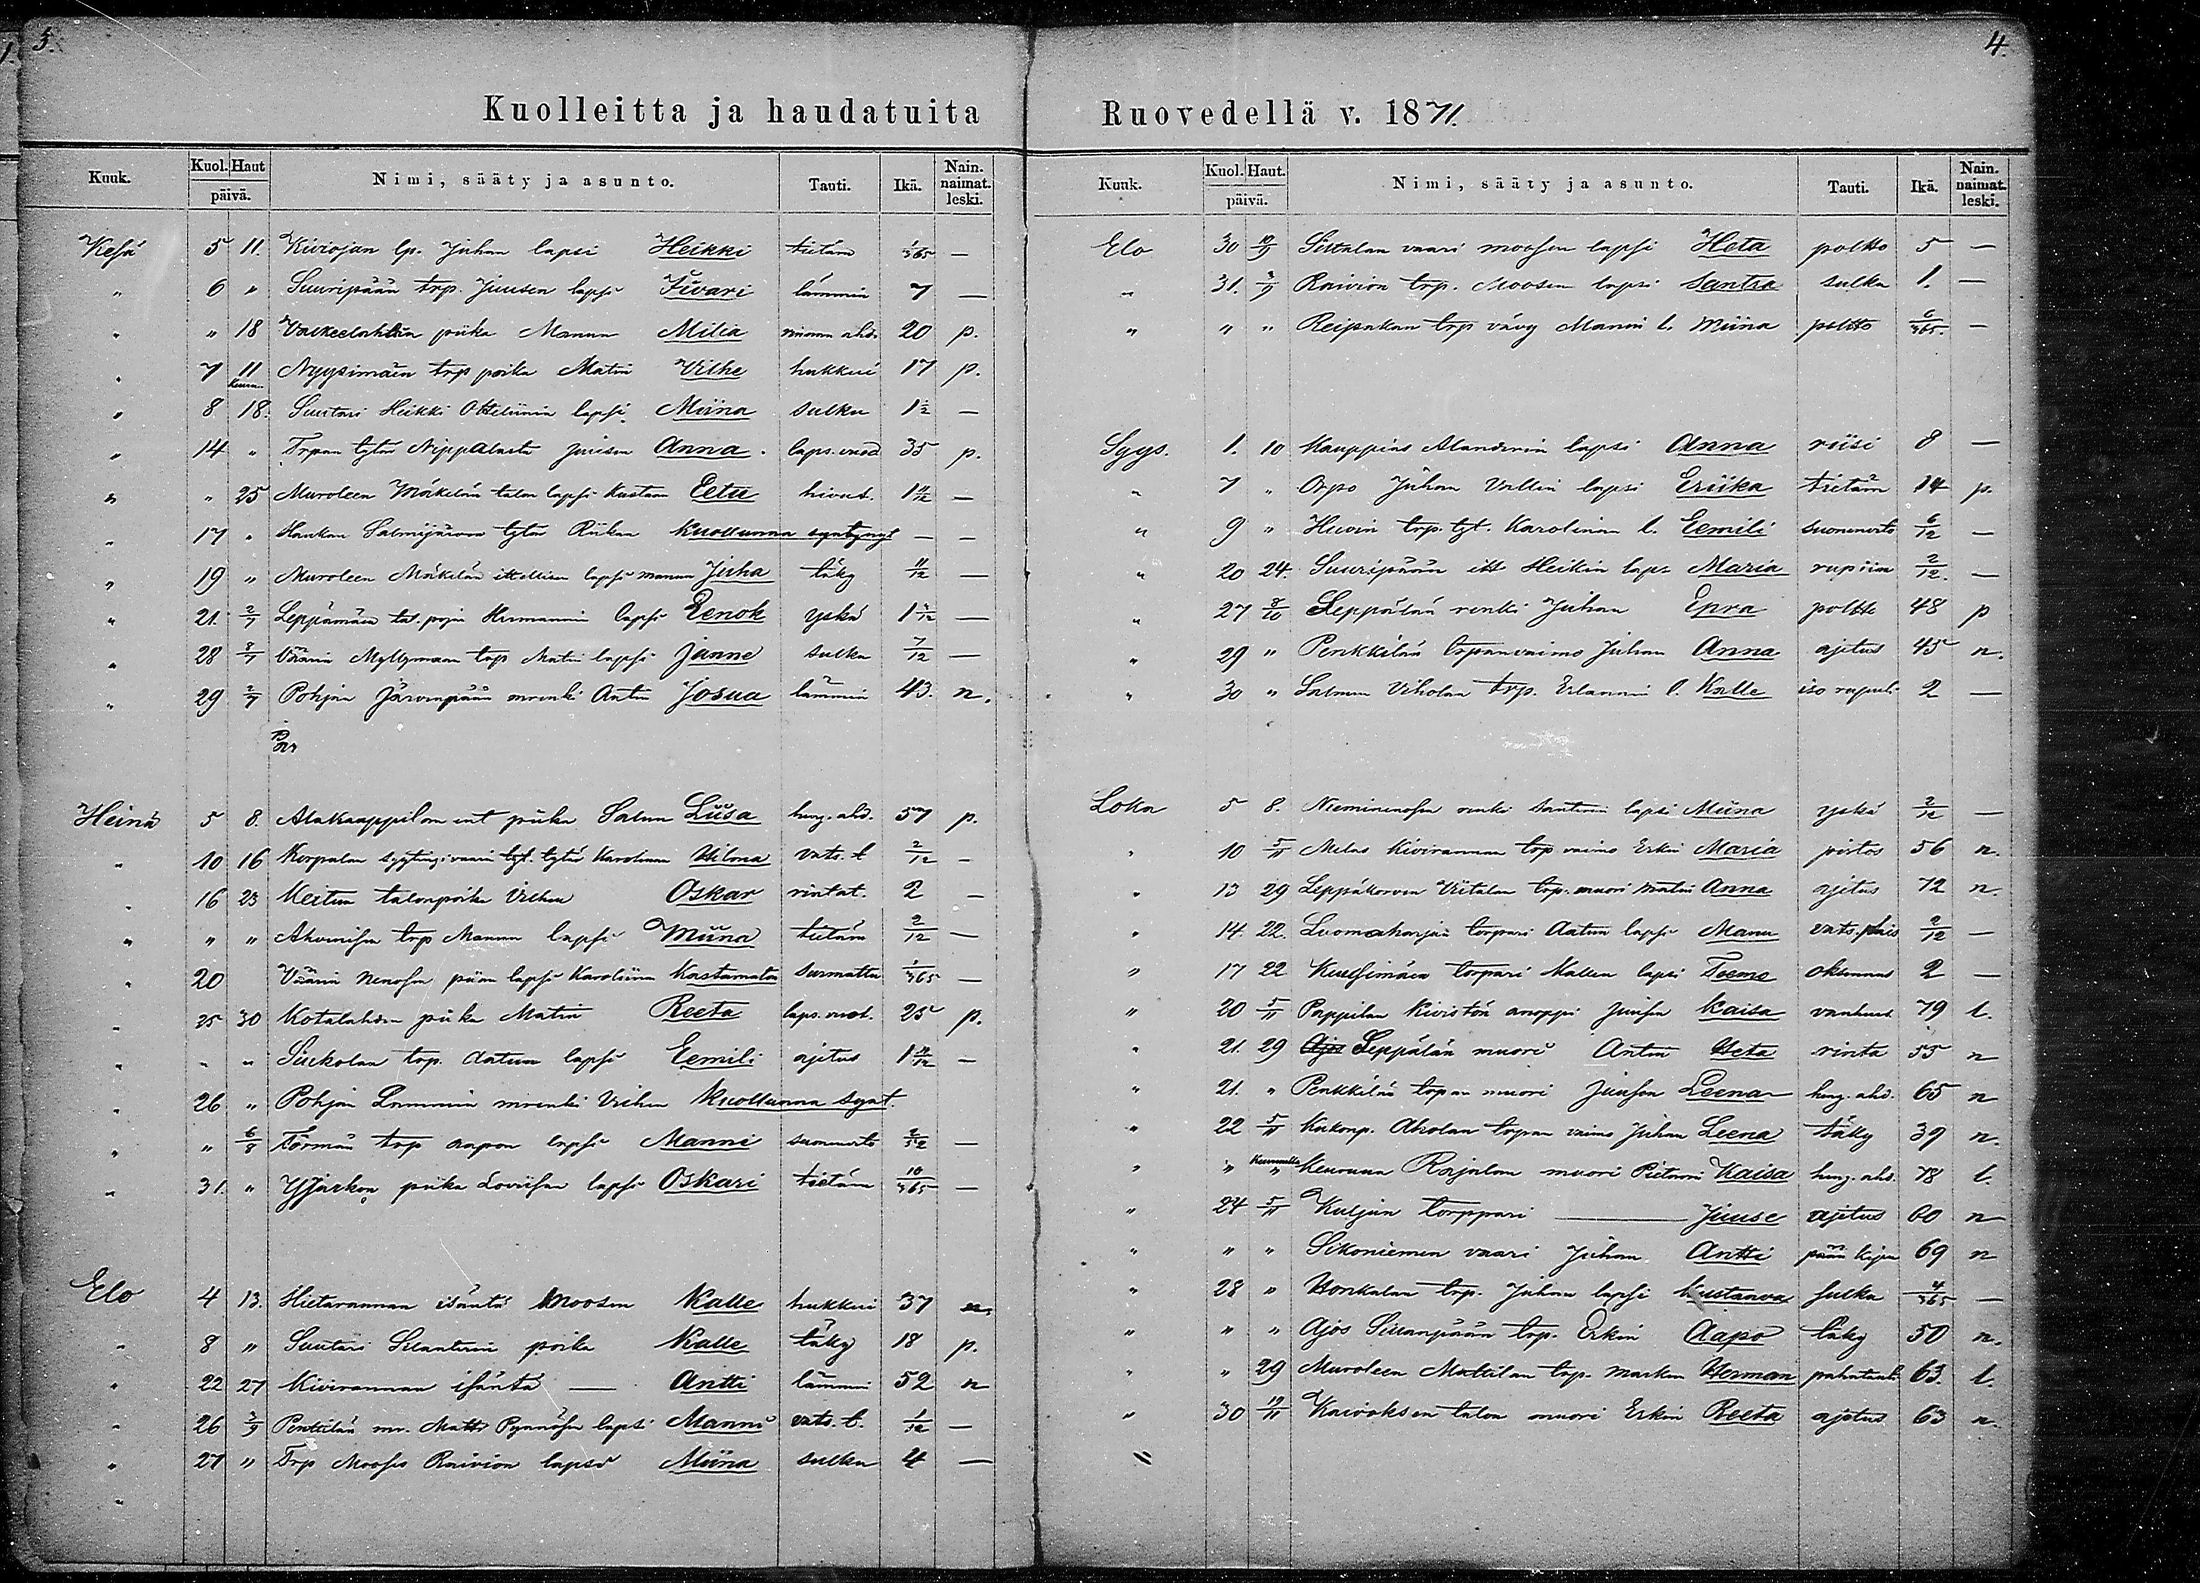 3.
Kuolleitta ja haudatuita
Kuuk. Kuol. Haut päivä. Nimi, sääty ja asunto. Tauti. Ikä. Nain. naimat. leski.
Kesä 5 11. Kiviojan lp. Juhan lapsi Heikki tietäm 1/365 —
" 6 " Suuripään trp. Juusen lapsi Iivari lämmin 7 —
" " 18 piika Manun Milia 20 p.
" 7 11 trp poika Matin Vilhe hukkui 17 p.
" 8 18. Suutari Heikki lapsi Miina sulku 1 1/2 —
" 14 " Trpan tytär Juusen Anna. laps. vuod 35 p.
" " 25 Muroleen Mäkelän talon lapsi Kustaan Eetu hivut. —
" 17 " Haukan Salmijärven tytär Riikan Kuollunna syntynyt — —
" 19 " Muroleen Mäkelän ittellisen lapsi manun Juha täky 11/12 —
" 21. 2/7 Leppämäen tal. pojan Hermannin lapsi Eenok yskä —
" 28 Väärin Myllymaan trp Matin lapsi Janne sulku 7/12 —
" 29 2/7 Pohjan Järvenpään mrenki Antin Josua lämmin 43. n.
Heinä 5 8. Alakaappilan piika Salun Liisa heng. ahd. 57 p.
" 10 16 Korpulan tytär Karoliinan Hilma vats. t 2/12 —
" 16 23 Keitun talonpoika Vilhun Oskar rintat. 2 —
" " " Ahvenisen trp Manun lapsi Miina tietäm 2/12 —
" 20 Väärin Nenosen piian lapsi Karoliina Kastamaton surmattu 1/365 —
" 25 30 Kotalahden piika Matin Reeta laps. vuot. 25 p.
" " " Siukolan trp. Aatun lapsi Eemili ajetus —
" 26 " Pohjan Lammin mrenki Vilhun Kuollunna synt.
" " 6/8 Törmän trp aapon lapsi Manni suonveto —
" 31. " Ylijärkön piika Loviisan lapsi Oskari tietäm 10/365 —
Elo 4 13. Hietarannan isäntä Moosen Kalle hukkui 37 n.
" 8 " Suutari Silanterin poika Kalle täky 18 p.
" 22 27 Kivirannan isäntä — Antti lämmin 52 n
" 26 3/9 Penttilän mr. Matti Pynnösen lapsi Manni vats. t. —
" 27 " Trp Mooses Raivion lapsi Miina sulku 4 —
"
4.
Ruovedellä v. 1871.
Kuuk. Kuol. Haut. päivä. Nimi, sääty ja asunto. Tauti. Ikä. Nain. naimat. leski.
Elo 30 10/9 vaari moosen lapsi Heta poltto 5 —
" 31. 3/9 Raivion trp. Moosen lapsi Santra sulku 1. —
" " " Reipakan trp vävy Manin l. Miina poltto 6/365. —
Syys. 1. 10 Kauppias Alanderin lapsi Anna riisi 8 —
" 7 " Orpo Juhan Vallin lapsi Eriika tietäm 14 p.
" 9 " Huvin trp. tyt. Karolinan l. Eemili suonenveto 6/12 —
" 20 24. Suuripään itt Heikin laps. Maria 2/12. —
" 27 8/10 Leppälän renki Juhan Epra poltto 48 p
" 29 " Penkkilän torpanvaimo Juhan Anna ajetus 45 n.
" 30 " Salmen Viholan trp. Erlannin l. Kalle iso rupuli 2 —
Loka 5 8. renki Santerin lapsi Miina yskä 2/12 —
" 10 5/11 Kivirannan trp vaimo Erkin Maria pistos 56 n.
" 13 29 Leppäkorven Viitalan trp. muori Matin Anna ajetus 72 n.
" 14 22. Luomaharjun torpari Aatun lapsi Manu 2/12 —
" 17 22 Kuusimäen torpari Kallen lapsi Teemo oksennus 2 —
" 20 5/11 Pappilan Kivistön anoppi Juusen Kaisa vanhuus 79 l.
" 21. 29 Ajos Leppälän muori Antin Heta rinta 55 n
" 21. " Penkkilän torpan muori Juusen Leena heng. ahd. 65 n
" 22 5/11 Aholan torpan vaimo Juhan Leena täky 39 n.
" " " Keuruun Rajalan muori Pietarin Kaisa heng. ahd. 78 l.
" 24 5/11 Kuljun torppari — Juuse ajetus 60 n
" " " Sikoniemen vaari Juhan Antti pään kipu 69 n
" 28 " Honkalan trp. Juhan lapsi Kustaava sulku 4/365 —
" " " Ajos Siltanpään trp. Erkin Aapo täky 50 n.
" " 29 Muroleen Mattilan trp. Markun Herman 63. l.
" 30 12/11 talon muori Erkin Reeta ajetus 63 n.
"